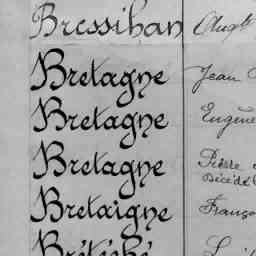 Bressihan Augte
Bretagne Jean
Bretagne Eugène
Bretagne Pierre
Décédé
Bretaigne Franço
Brétéché